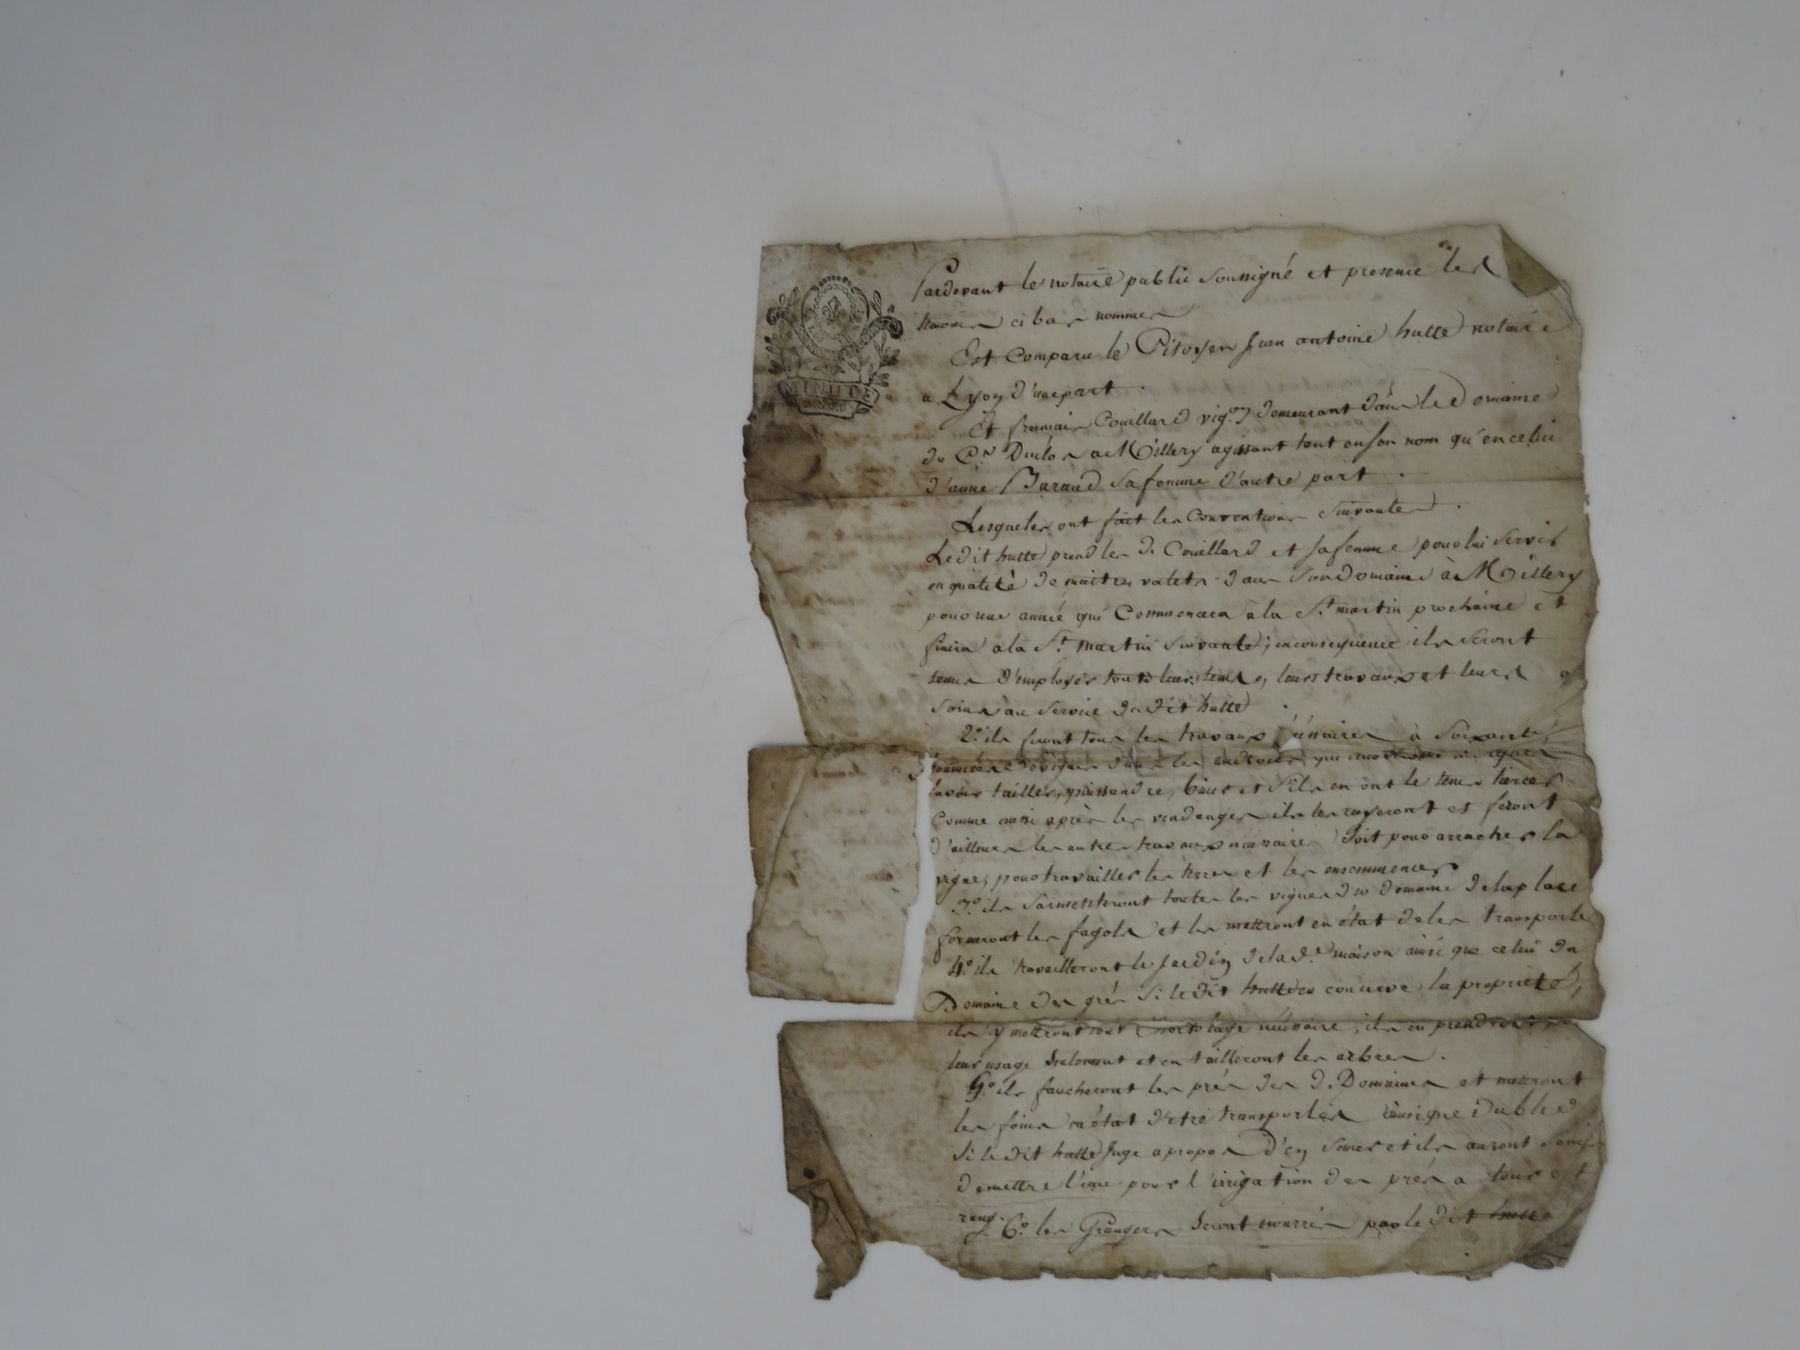 MINUTE
Pardevant le notaire public soussigné et presence les
temoins ci bas nommes
Est Comparu le Citoyen Jean antoine hutte notaire
a Lyon d'une part .
Et francois Couillard vig.on demeurant dans le Domaine
du C.en Duclos a Millery agissant tant en son nom qu'en celui
d'anne Baraud sa femme d'autre part .
Lesqueles ont fait les Conventions Suivantes .
Le dit hutte prend les d. Couillard et sa femme pour lui servir
en qualité de maitres valets dans son domaine à Millery
pour une année qui Commencera à la S.t martin prochaine et
finira à la S.t martin Suivante ; en consequence ils seront
tenus d'employer tout leurs tems, leurs travaux et leurs
soins au service du dit hutte .
2.o ils feront tous les travaux à Soixante
de vignes dans les endroits qui
savoir tailler, biner et s'ils en ont le tems tercer
Comme aussi après les vendanges ils les et feront
d'ailleurs les autres travaux necessaires soit pour arracher la
vigne, pour travailler les terres et les ensemencer
3.o ils Sarmenteront toutes les vignes du domaine de la place
formeront les fagots et les mettront en état de les transporter
4.o ils travailleront le Jardin de la d.e maison ainsi que celui du
Domaine des grès Si le dit hutte en conserve la propriété,
ils y mettront tout l'hortolage necessaire, ils en prendront
leur usage seulement et en tailleront les arbres .
5.o ils faucheront les prés des d. Domaines et mettront
les foins en état d'etre transportés ainsi que du bled
Si le dit hutte Juge apropos d'en Semer et ils auront Soin
de mettre l'eau pour l'irrigation des prés a tour et
rang. 6.o les Grangers seront nourris par le dit hutte